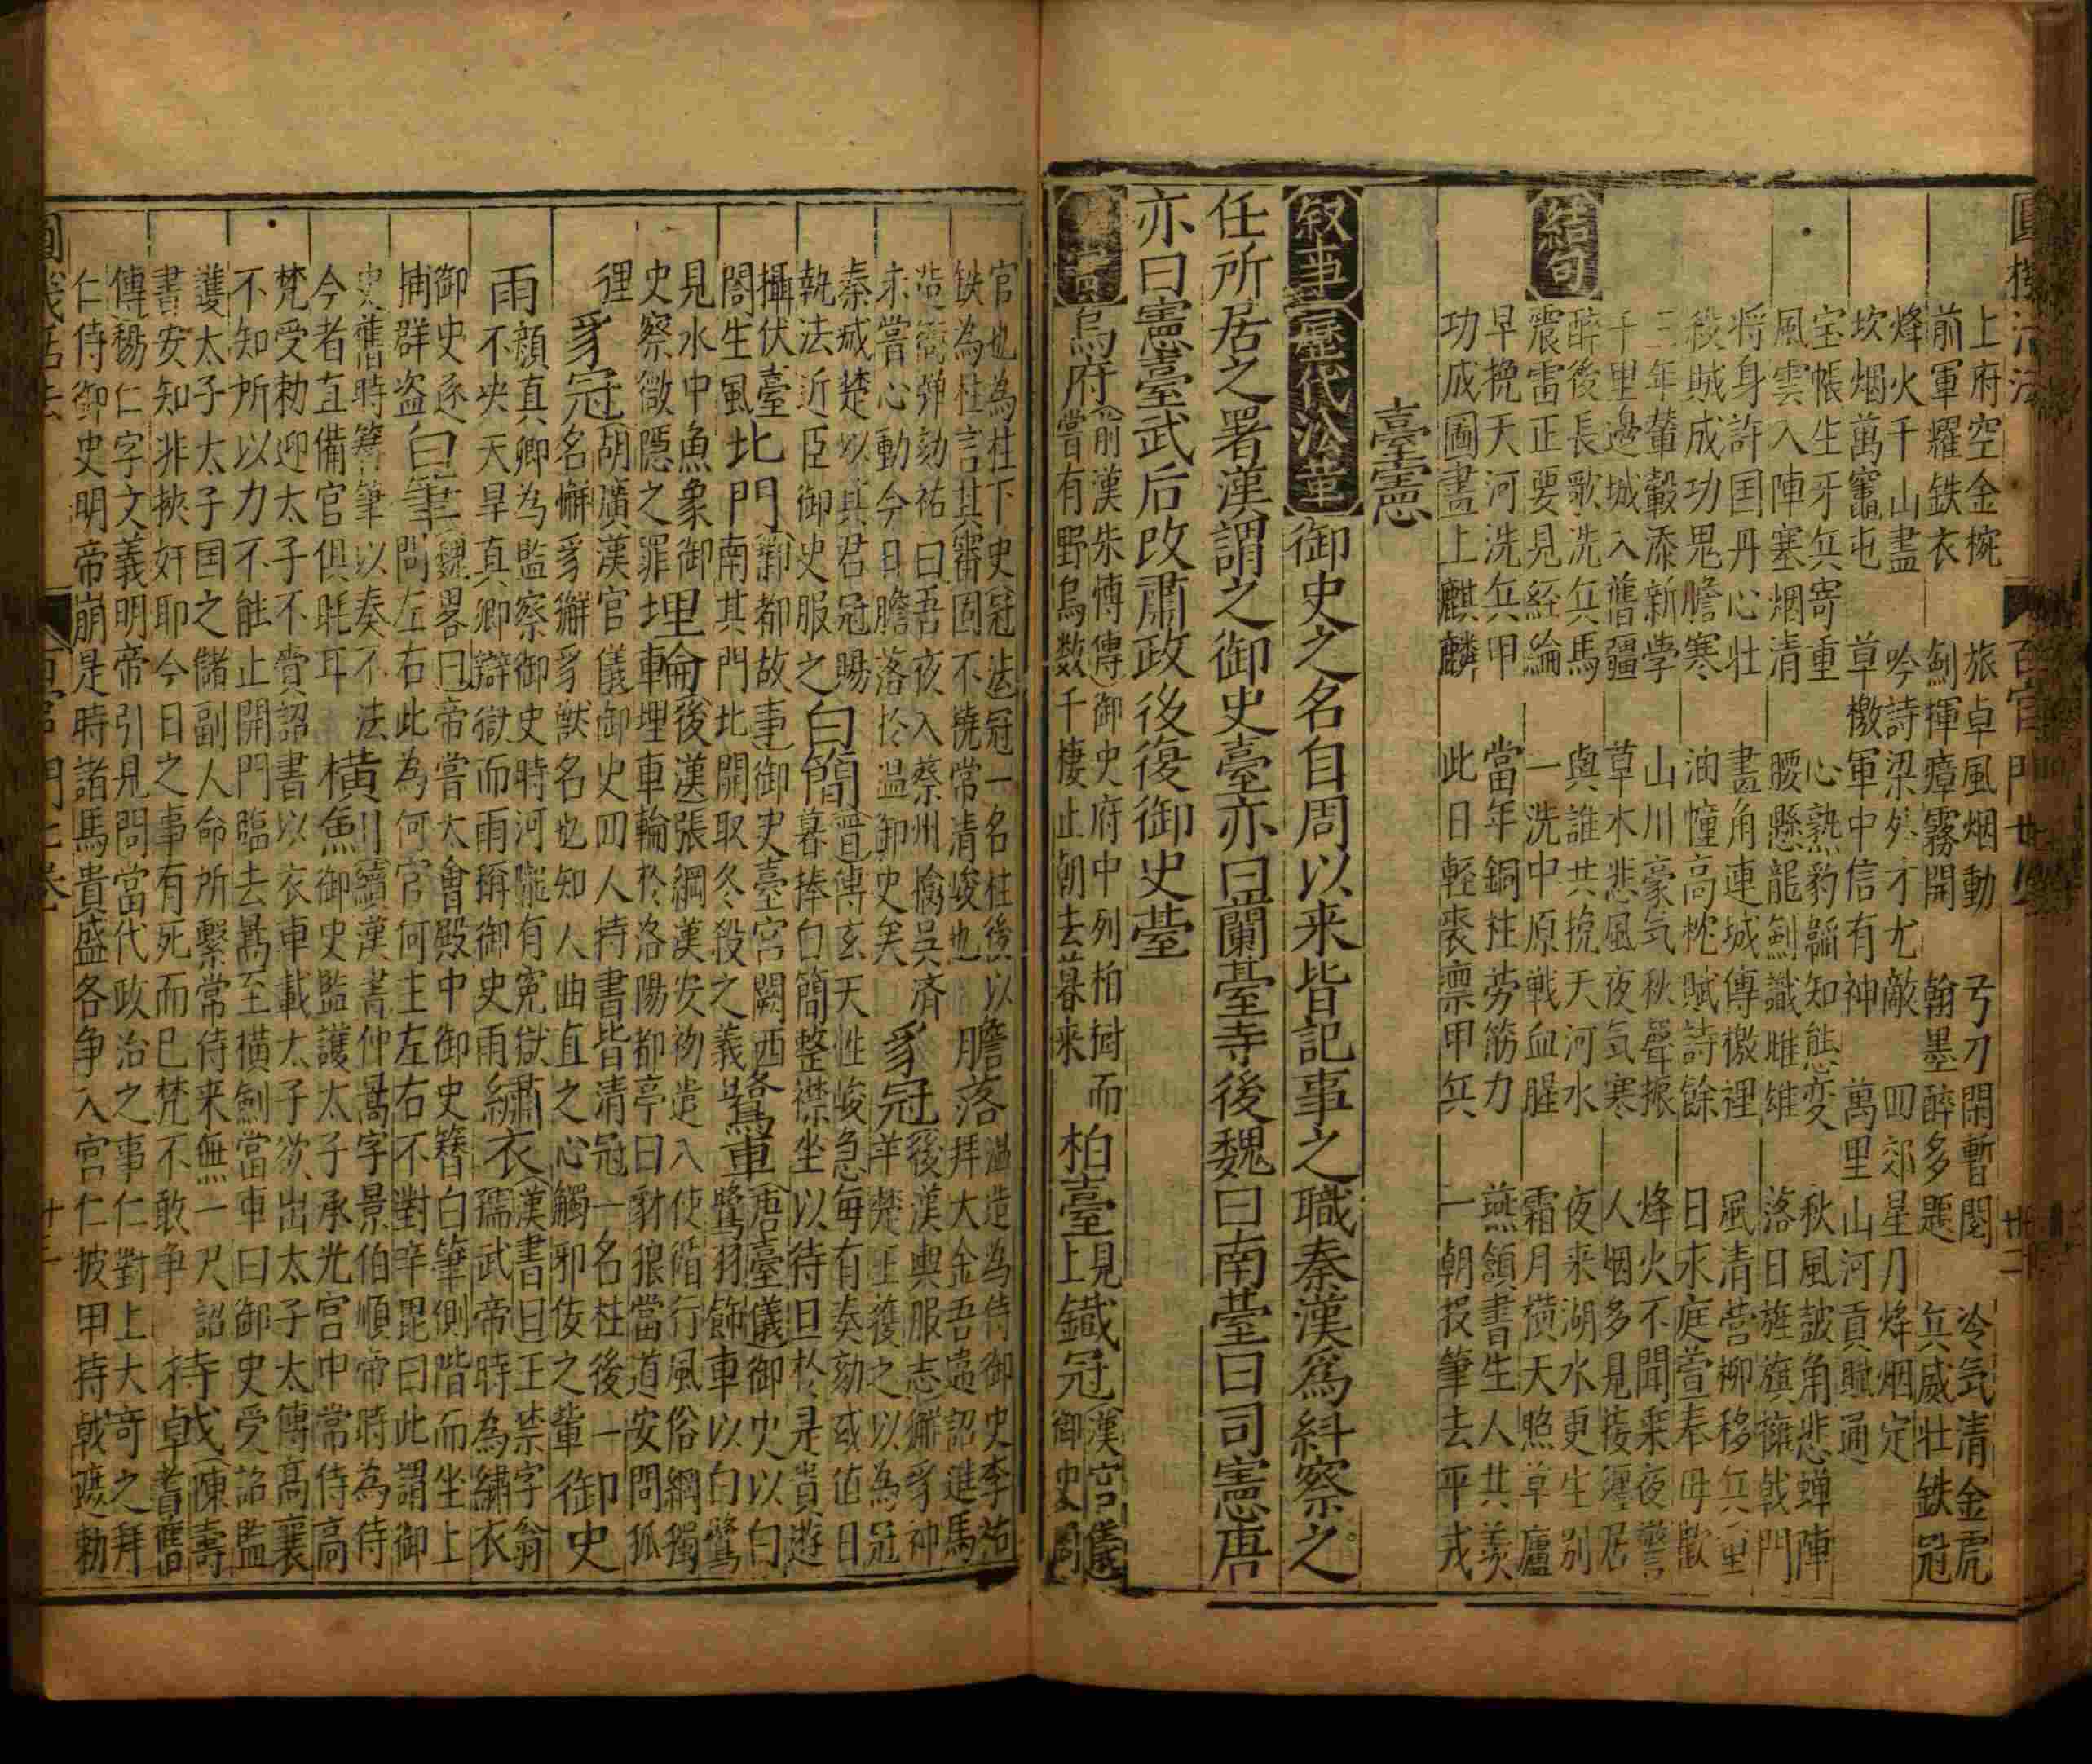 圓機活法 百官門 廿二
上府空金椀 旅卓風烟動 弓刀閑暫閲 冷気清金虎
前軍耀鉄衣 劍揮瘴霧開 翰墨醉多題 兵威壮鉄冠
烽火千山盡 吟詩梁外才尤敵 四郊星月烽烟定
坎烟萬竈屯 草檄軍中信有神 萬里山河貢賦通
宝帳生牙兵寄重 心熟豹韜知態変 秋風皷角悲蝉陣
風雲入陣塞烟清 腰懸龍劍識雌雄 落日旌旗擁戟門
将身許国丹心壮 畫角連城傳檄裡 風清営柳移兵重
殺賊成功鬼膽寒 油幢高枕賦詩餘 日永庭萱奉母歓
結句
三年輦轂添新学 山川豪气秋聲振 烽火不聞来夜警
千里邊城入舊疆 草木悲風夜気寒 人烟多見接邊居
醉後長歌洗兵馬 與誰共挽天河水 夜来湖水更生別
震雷正要見経綸 一洗中原戦血腥 霜月横天照草廬
早挽天河洗兵甲 當年銅柱労筋力 燕頷書生人共羡
功成圖畫上麒麟 此日軽裘凛甲兵 一朝投筆去平戎
臺憲
叙事 歴代沿革 御史之名自周以来皆記事之職秦漢為糾察之
任所居之署漢謂之御史臺亦曰蘭䑓寺後魏曰南䑓曰司憲唐
亦曰憲臺武后改肅政後復御史䑓
烏府 前漢朱博傳御史府中列柏樹而
嘗有野烏数千棲止朝去暮来 柏臺 見上 鐵冠 漢官儀御史
官也為柱下史冠法冠一名柱後以
鉄為柱言其審固不撓常清峻也 膽落 温造為侍御史李祐拜大金吾違詔進馬
造衙弾劾祐曰吾夜入蔡州擒吳済
未嘗心動今日膽落於温御史矣 豸冠 後漢輿服志獬豸神羊楚王獲之以為冠
秦滅楚以其君冠賜
執法近臣御史服之 白簡 晋傳玄天性峻急毎有奏劾或值日暮捧白簡整襟坐以待旦於是貴遊
攝伏臺
閤生風 北門 鄴都故事御史臺宮闕西南其門北開取冬殺之義 鷺車 唐臺儀御史以白鷺羽飾車以白鷺
見水中魚象御
史察微隠之罪 埋輪 後漢張綱漢安初遣入使循行風俗綱獨車埋車輪於洛陽都亭曰豺狼當道安問狐
狸 豸冠 胡廣漢官儀御史四人持書皆清冠一名柱後一名獬豸獬豸獣名也知人曲直之心觸邪佞之輩 御史
雨 顔真卿為監察御史時河隴有冤獄
不央天旱真卿辯獄而雨稱御史雨 繡衣 漢書曰王禁字翁孺武帝時為繍衣
御史逐
捕群盗 白筆 魏畧曰帝嘗大會殿中御史簪白筆側階而坐上問左右此為何官何主左右不對辛毘曰此謂御
史舊時簪筆以奏不法
今者直備官俱眊耳 横劍 續漢書仲暠字景伯順帝時為侍御史監護太子承光宮中常侍高
梵受勅迎太子不賫詔書以衣車載太子欲出太子太傅高襄
不知所以力不能止開門臨去暠至横劍當車曰御史受詔監
護太子太子国之儲副人命所繋常侍来無一尺詔
書安知非挾奸耶今日之事有死而已梵不敢争 持戟 陳壽耆舊
傳楊仁字文義明帝引見問當代政治之事仁對上大奇之拜
仁侍御史明帝崩是時諸馬貴盛各争入宮仁披甲持戟遮勅